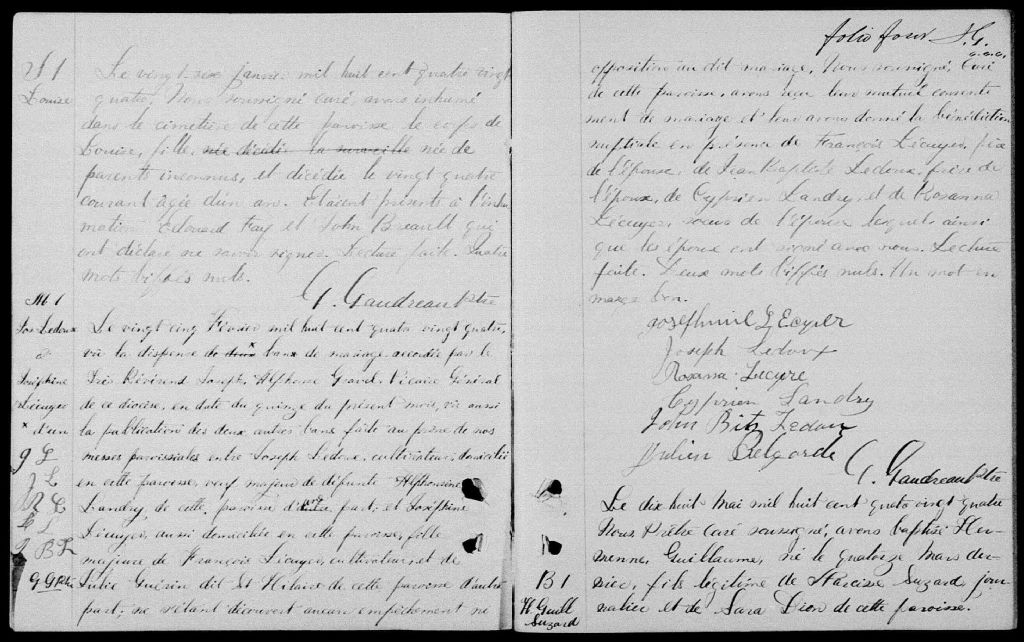 S 1
Louise
Le vingt six janvier mil huit cent quatre vingt
quatre, Nous soussigné curé, avons inhumé
dans le cimetière de cette paroisse le corps de
Louise, fille, née de
parents inconnus, et décédée le vingt quatre
courant âgée d'un an. Etaient présents à l'inhu
mation Edouard Fay et John Breault qui
ont déclaré ne savoir signer. Lecture faite. Quatre
mots biffés nuls.
G. Gaudreau Ptre
M 1
Jos Ledoux
à
Joséphine
Lécuyer
x d'un
J L
R L
J B L
G G Ptre
Le vingt cinq Février mil huit cent quatre vingt quatre,
vu la dispense de deux x bans de mariage accordée par le
Très Révérend Joseph Alphonse Gravel, Vicaire Général
de ce diocèse, en date du quinze du présent mois, vu aussi
la publication des deux autres bans faite au prône de nos
messes paroissiales entre Joseph Ledoux, cultivateur, domicilié
en cette paroisse, veuf majeur de défunte Alphonsine
Landry, de cette paroisse d'une part; et Joséphine
Lécuyer, aussi domiciliée en cette paroisse, fille
majeure de François Lécuyer, cultivateur, et de
Julie Guérin dit St Hilaire de cette paroisse d'autre
part; ne s'étant découvert aucun empêchement ni
folio four J.G.
opposition au dit mariage, Nous soussigné, Curé
de cette paroisse, avons reçu leur mutuel consente
ment de mariage et leur avons donné la bénédiction
nuptiale en présence de François Lécuyer, père
de l'épouse, de Jean Baptiste Ledoux, frère de
l'époux, de Cyprien Landry, et de Rosanna
Lécuyer, soeur de l'épouse lesquels ainsi
que les époux ont signé avec nous. Lecture
faite. Deux mots biffés nuls. Un mot en
marge bon.
Joseph Ledoux
Rosanna Lecuyre
Cyprien Landry
John Bts Ledoux
Julien Belgarde
G. Gaudreau Ptre
B 1
H Guill
Suzard
Le dix huit Mai mil huit cent quatre vingt quatre
Nous Prêtre Curé soussigné, avons baptisé
Guillaume, né le quatorze Mars der-
nier, fils légitime de Narcisse Suzard jour
nalier et de Sara Dion de cette paroisse.